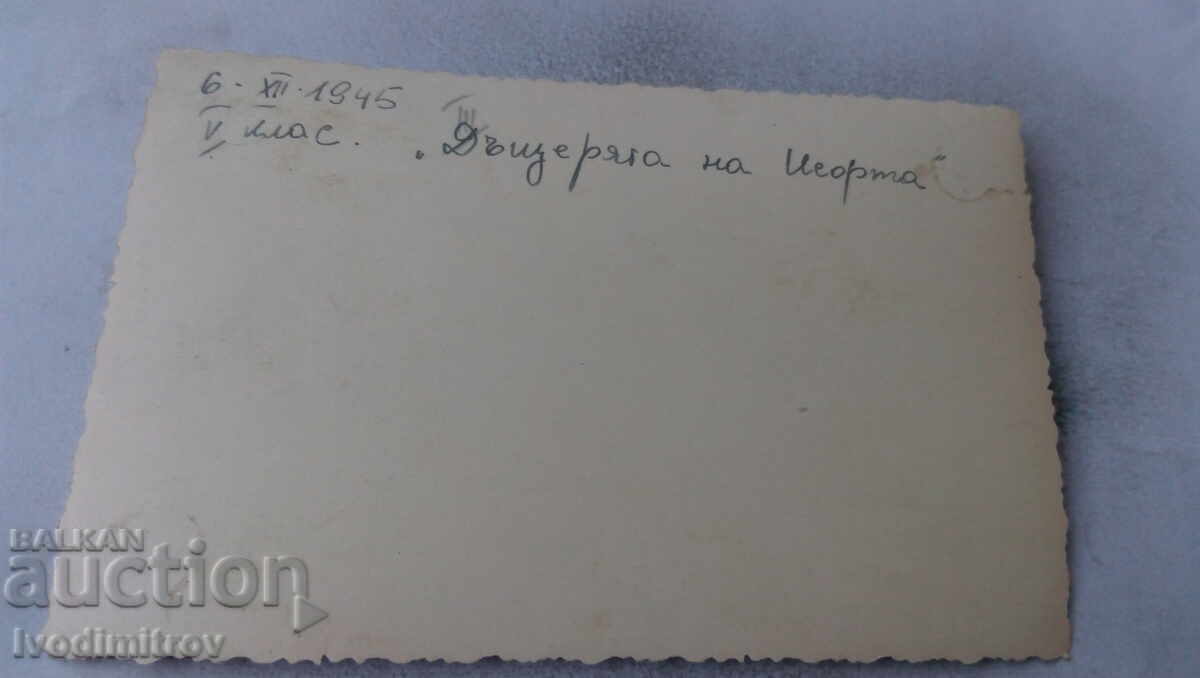 6. XII. 1945
V клас. III „Дъщерята на Иеорта"
BALKAN
auction
Ivodimitrov